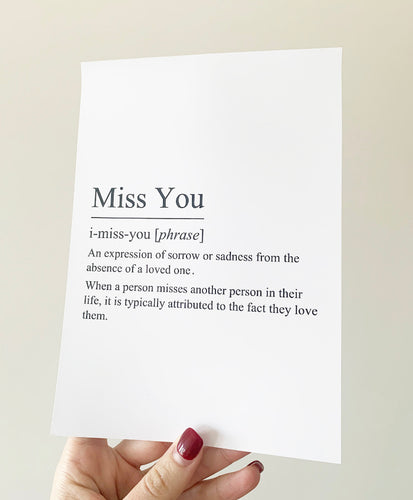 Miss You
i-miss-you [phrase]
An expression of sorrow or sadness from the
absence of a loved one.
When a person misses another person in their
life, it is typically attributed to the fact they love
them.